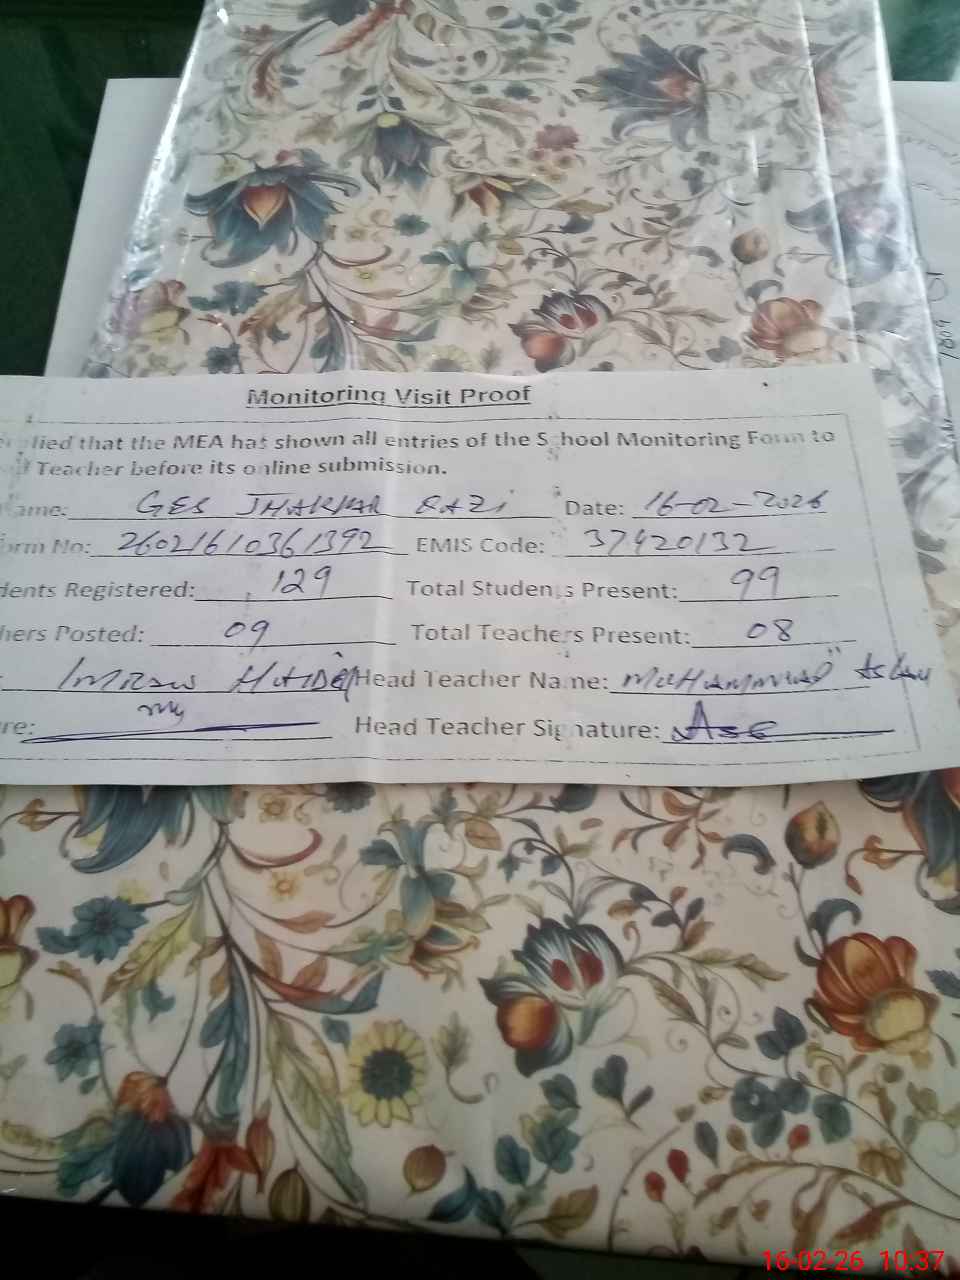 Monitoring Visit Proof
lied that the MEA has shown all entries of the School Monitoring Form to
Teacher before its online submission.
ame: GES JHAKKAR Date: 16-02-2026
orm No: 26021610361392 EMIS Code: 37420132
dents Registered: 129 Total Students Present: 99
hers Posted: 09 Total Teachers Present: 08
IMRAN HAIDER Head Teacher Name: MUHAMMAD ASLAM
re: Head Teacher Signature:
16-02-26 10:37